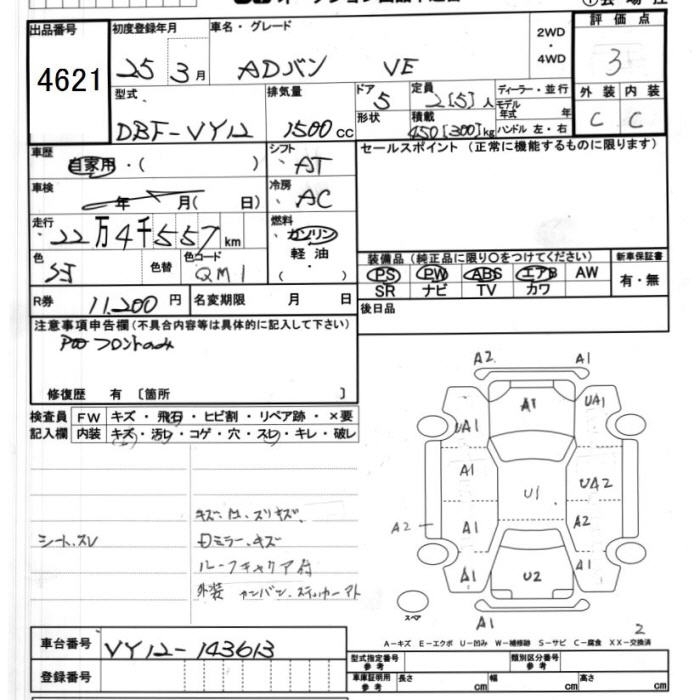 出品番号 4621
初度登録年月 25年 3月
車名・グレード ADバン VE
2WD ・ 4WD
評価点 3
外装 C 内装 C
型式 DBF-VY12
排気量 1500cc
ドア 5
形状
定員 2[5]人
積載 450[300]kg
ディーラー・並行
モデル年式 年
ハンドル 左・右
車歴 自家用・( )
シフト AT
車検 年 月( 日)
冷房 AC
走行 22万4千557km
燃料 ガソリン 軽油 ・( )
色
色替
色コード QM1
R券 11,200円
名変期限 月 日
セールスポイント (正常に機能するものに限ります)
装備品 (純正品に限り○をつけてください)
新車保証書 有・無
PS PW ABS エアB AW
SR ナビ TV カワ
後日品
注意事項申告欄(不具合内容等は具体的に記入して下さい)
PW フロントのみ
修復歴 有 〔箇所 〕
検査員記入欄
FW キズ・飛石・ヒビ割・リペア跡・×要
内装 キズ・汚レ・コゲ・穴・スレ・キレ・破レ
シート、スレ
ミラー、キズ
ルーフキャリア付
外装 カンバン、ステッカーアト
A2 A1
A1
UA1 UA1
A1 U1 UA2
A2 A1 A2
A1 U2 A1
A1
スペア
2
A-キズ E-エクボ U-凹み W-補修跡 S-サビ C-腐食 XX-交換済
車台番号 VY12-143613
登録番号
型式指定番号 参考
類別区分番号 参考
車庫証明用 参考 長さ cm 幅 cm 高さ cm